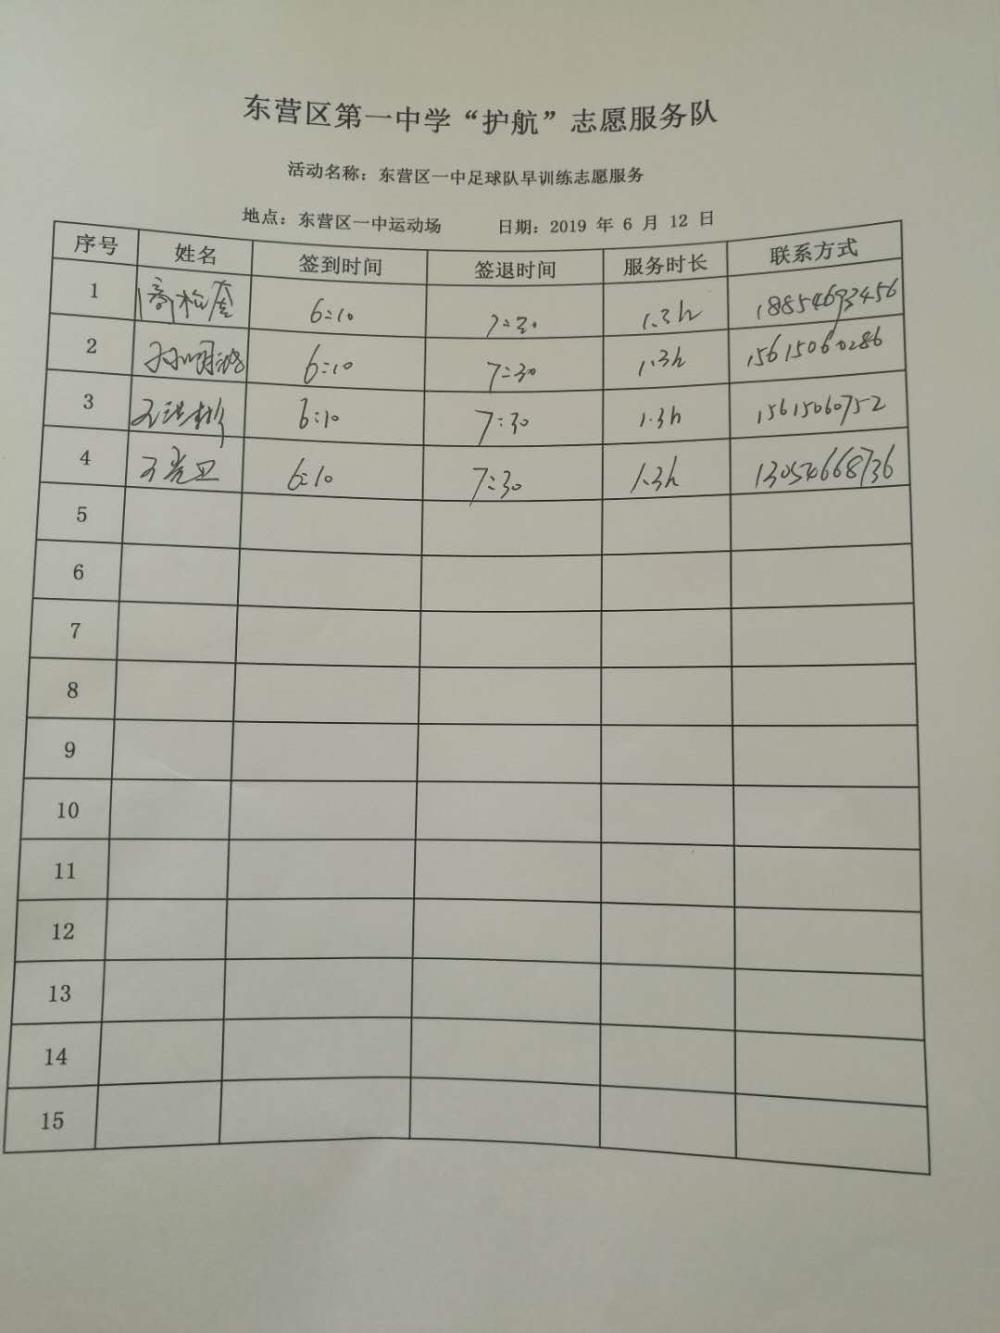 东营区第一中学“护航”志愿服务队
活动名称：东营区一中足球队早训练志愿服务
地点：东营区一中运动场 日期：2019 年 6 月 12 日
序号 姓名 签到时间 签退时间 服务时长 联系方式
1 6:10 7:30 1.3h 18854693456
2 6:10 7:30 1.3h 15615060286
3 6:10 7:30 1.3h 15615060752
4 6:10 7:30 1.3h 13054668736
5
6
7
8
9
10
11
12
13
14
15